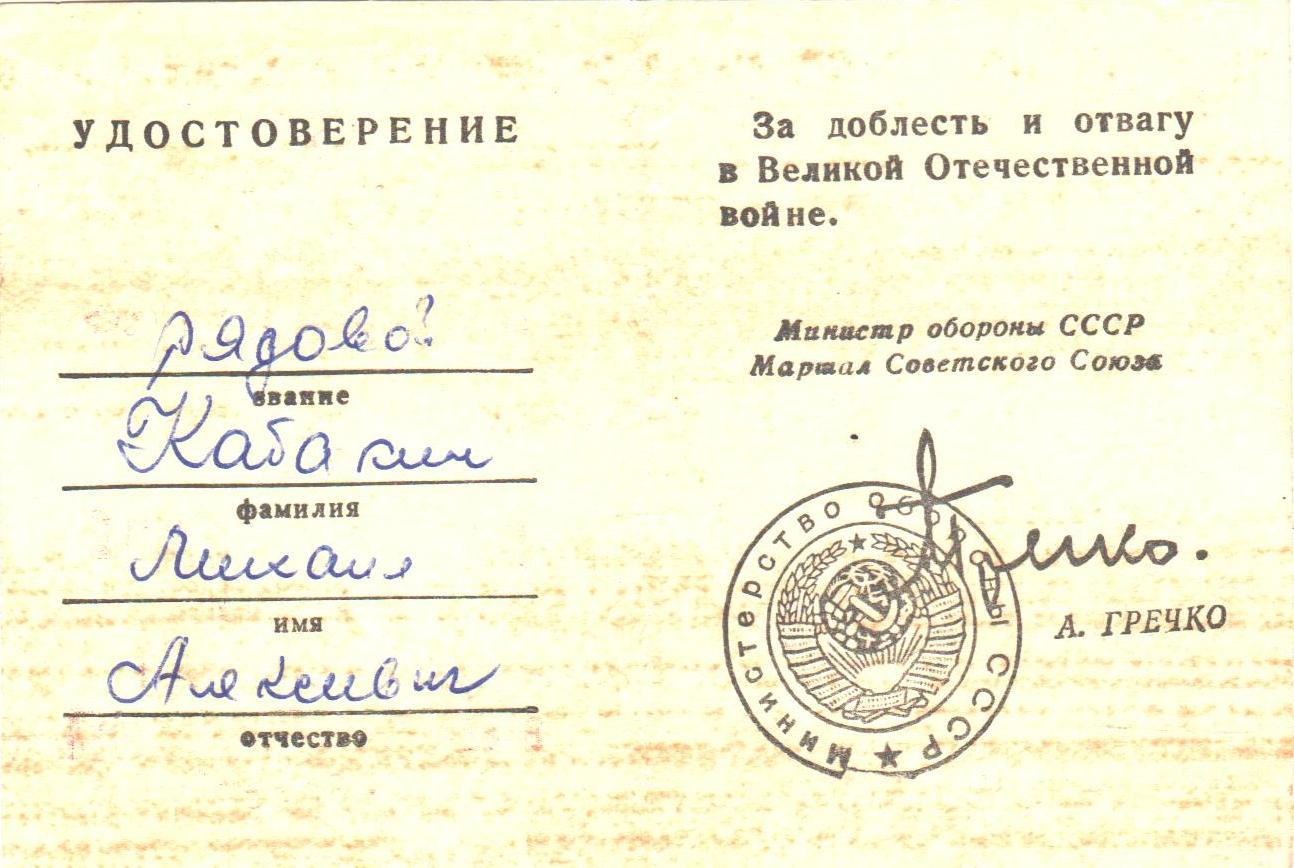 УДОСТОВЕРЕНИЕ
рядовой
звание
Кабакин
фамилия
Михаил
имя
Алексеевич
отчество
За доблесть и отвагу
в Великой Отечественной
войне.
Министр обороны СССР
Маршал Советского Союза
Министерство обороны СССР
А. ГРЕЧКО